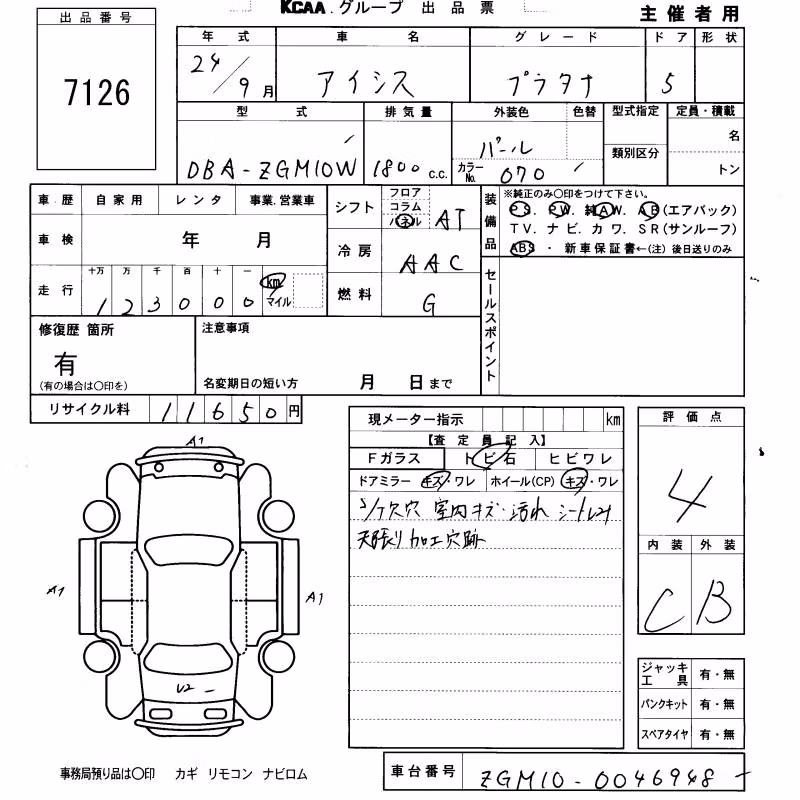 KCAA.グループ 出品票
主催者用
出品番号
7126
年式 車名 グレード ドア 形状
24/9月 アイシス プラタナ 5
型式 排気量 外装色 色替 型式指定 定員・積載
DBA-ZGM10W 1800 c.c. パール 名
カラーNo. 070 類別区分 トン
車歴 自家用 レンタ 事業.営業車
車検 年 月
走行 十万 万 千 百 十 一
123000 km マイル
シフト フロア コラム パネル AT
冷房 AAC
燃料 G
装備品 ※純正のみ○印をつけて下さい。
PS. PW. 純AW. AB(エアバック)
TV. ナビ. カワ. SR(サンルーフ)
ABS ・ 新車保証書←(注) 後日送りのみ
セールスポイント
修復歴 箇所
有
(有の場合は○印を)
注意事項
名変期日の短い方 月 日まで
リサイクル料 11650円
現メーター指示 km
【査定員記入】
Fガラス トビ石 ヒビワレ
ドアミラー キズ・ワレ ホイール(CP) キズ・ワレ
穴 室内キズ・汚れ シート
天張り加工穴跡
評価点
4
内装 外装
C B
A1
A1
A1
U2
ジャッキ工具 有・無
パンクキット 有・無
スペアタイヤ 有・無
事務局預り品は○印 カギ リモコン ナビロム
車台番号 ZGM10-0046948